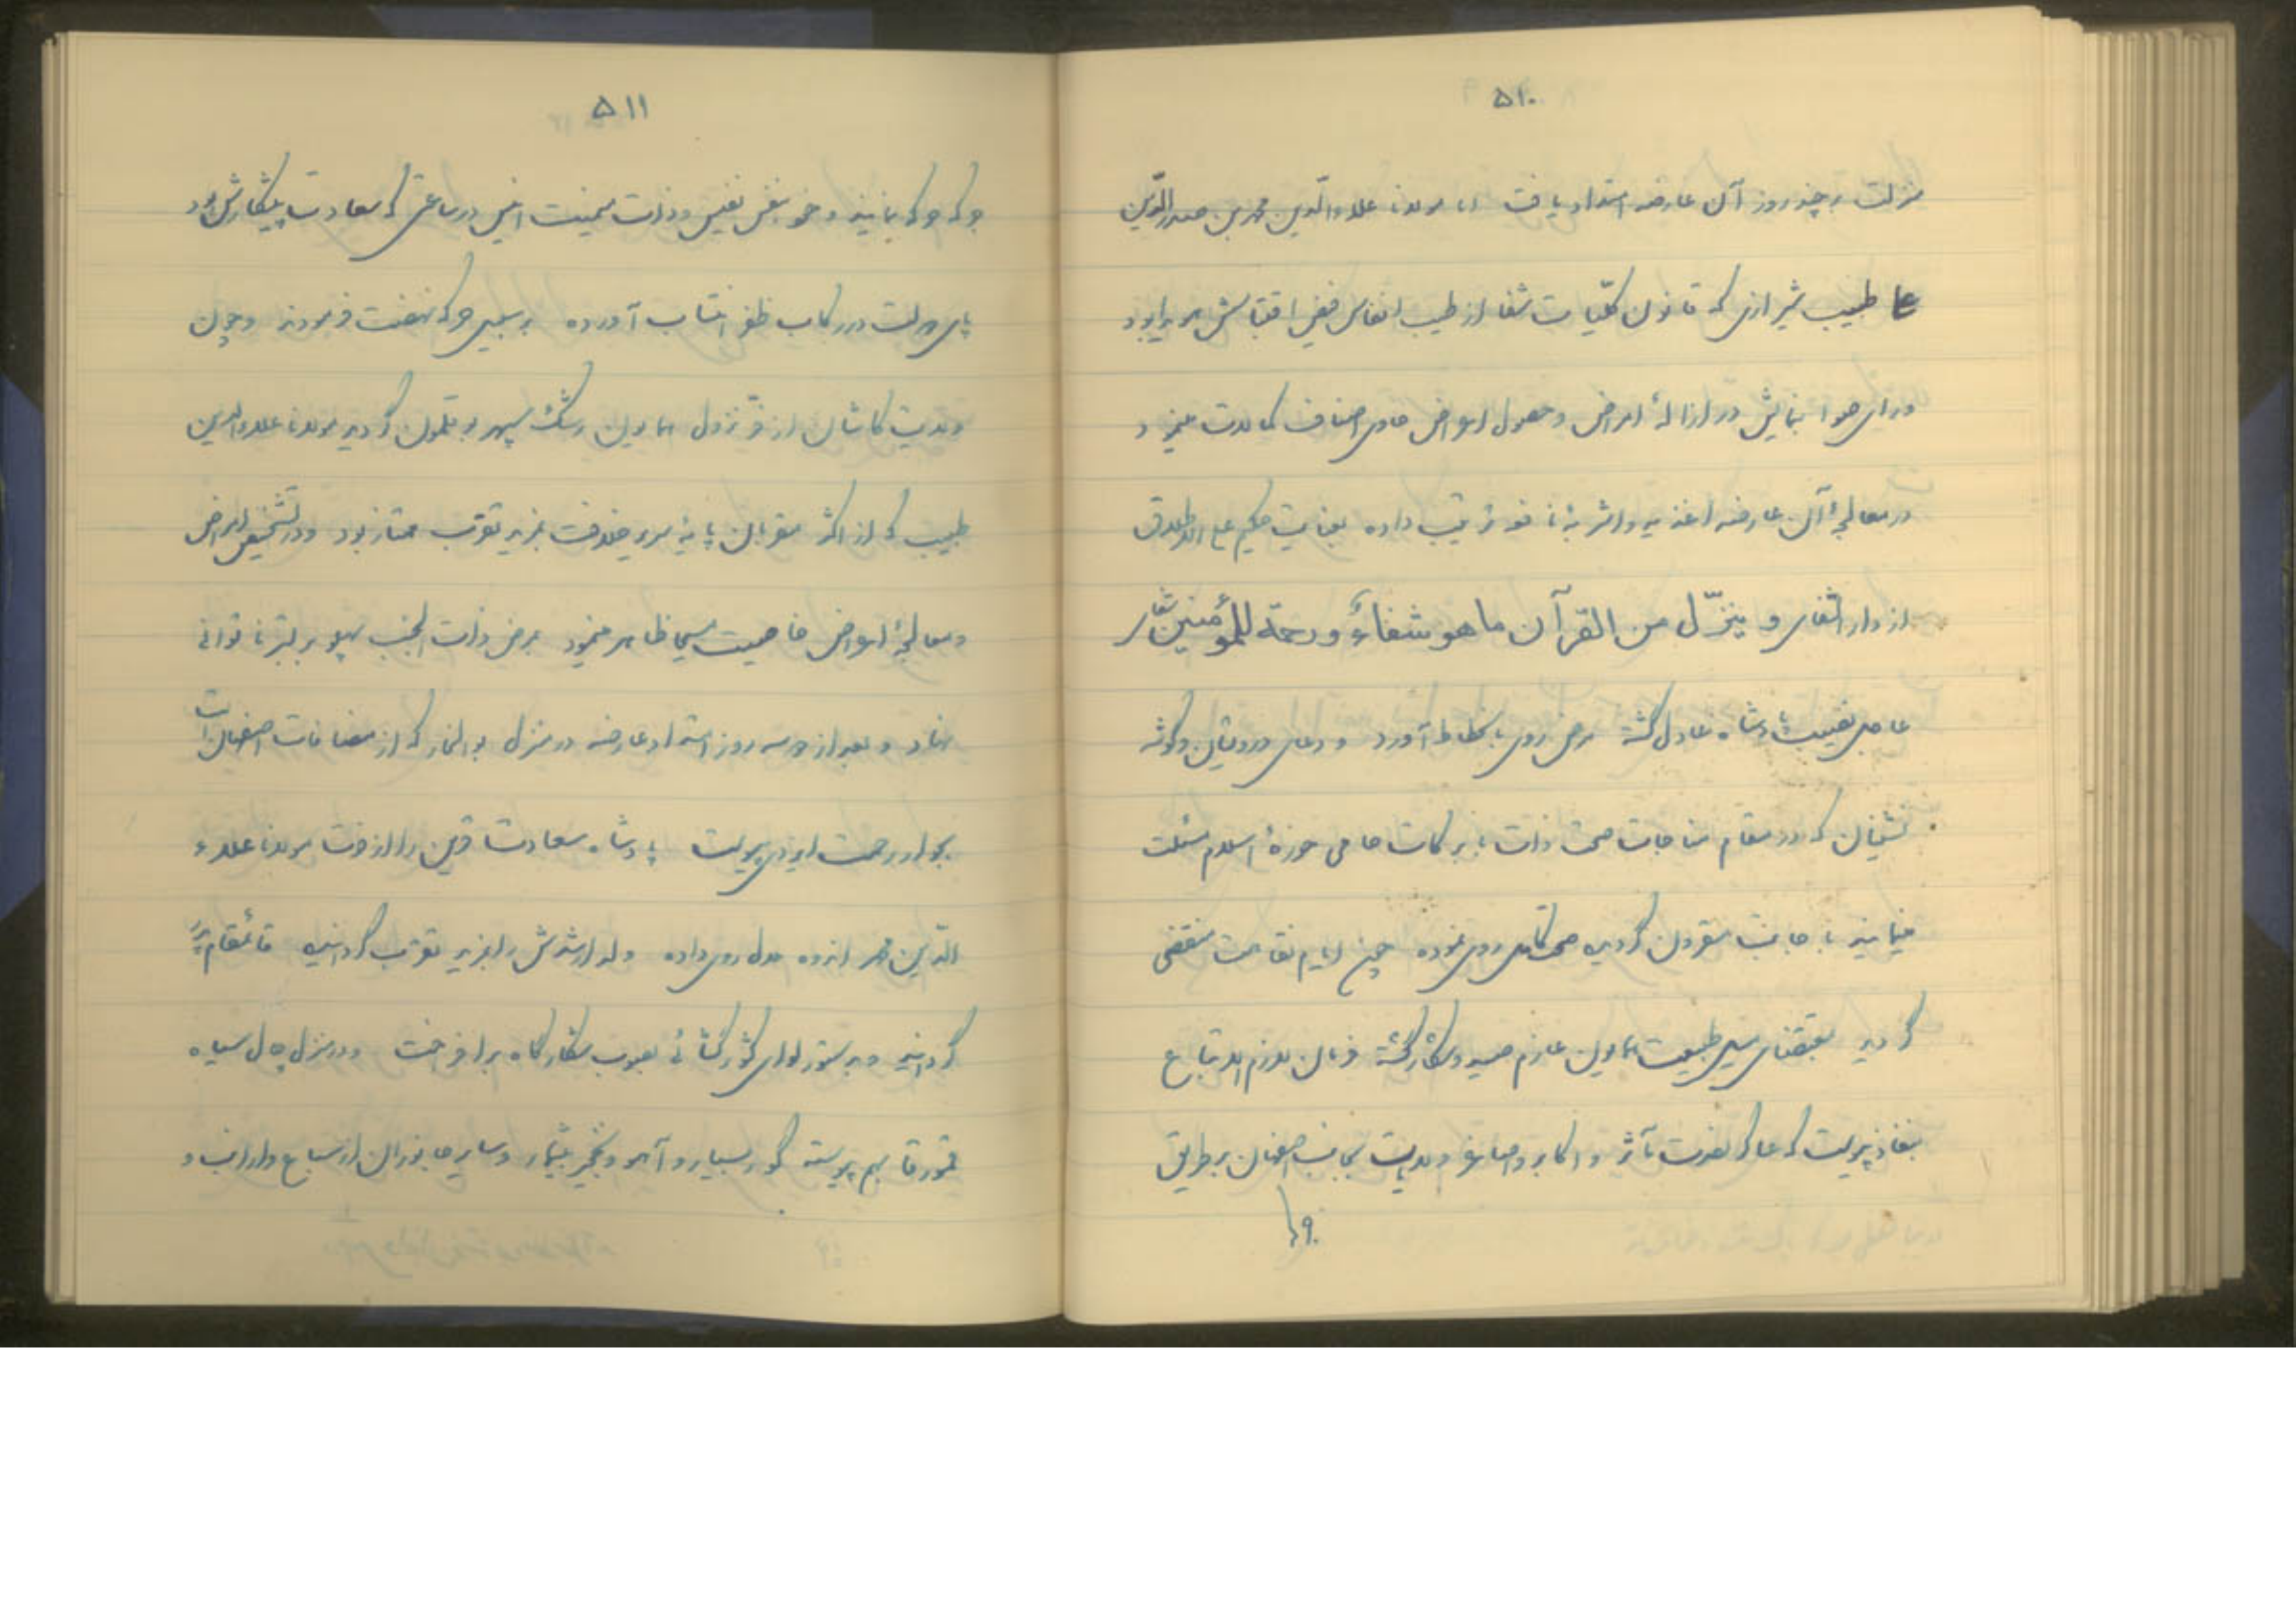 ۵۱۰
منزلت و چند روز آن عارضه امتداد یافت اما مولانا علاءالدّین محمد بن صدرالدّین
طبیب شیرازی که قانون کلّیات شفا از طیب انفاس فیض اقتباس هویدا بود
و رای صواب نمایش در ازالهٔ امراض و حصول اعراض حاوی اصناف کمالات مینمود
در معالجهٔ آن عارضه اغذیه و اشربهٔ نافع ترتیب داده بعنایت حکیم علی الاطلاق
از دار الشفای و ینزّل من القرآن ما هو شفاءٌ و رحمة للمؤمنین شفای
عاجل نصیب پادشاه عادل گشته مرض روی بانحطاط آورد و دعای درویشان و گوشه
نشینان که در مقام مناجات صحت ذات با برکات حامی حوزهٔ اسلام مسئلت
مینمایند باجابت مقرون گردیده صحت کامل روی نموده چون ایام نقاهت منقضی
گردید بمقتضای میل طبیعت همایون عازم صید و شکار گشته فرمان لازم الاتباع
بنفاذ پیوست که عساکر نصرت مآثر و اکابر و اصاغر ولایات بجانب اصفهان بر طریق
۵۱۱
جرکه جرکه نمایند و خود بنفس نفیس و ذات میمنت انیس در ساعتی که سعادت پیشکارش بود
پای دولت در رکاب ظفر انتساب آورده بر سبیل جرکه نهضت فرمودند و چون
ولایت کاشان از فرّ نزول همایون رشک سپهر بوقلمون گردید مولانا علاءالدین
طبیب که از اکثر مقربان پایهٔ سریر خلافت بمزید تقرّب ممتاز بود و در تشخیص امراض
و معالجهٔ اعراض خاصیت مسیحا ظاهر مینمود بمرض ذات الجنب پهلو بر بستر ناتوانی
نهاد و بعد از دو سه روز امتداد عارضه در منزل که از مضافات اصفهان است
بجوار رحمت ایزدی پیوست پادشاه سعادت قرین را از فوت مولانا علاء
الدّین محمد اندوه ملال روی داده ولد ارشدش را بمزید تقرّب گردانیده قائمقام پدر
گردانید و بدستور لوای کشورگشائی بصوب شکارگاه برافراخت و در منزل چال سیاه
قمورقا بهم پیوسته گور بسیار و آهو و نخجیر بیشمار و سایر جانوران از سباع و ارانب و